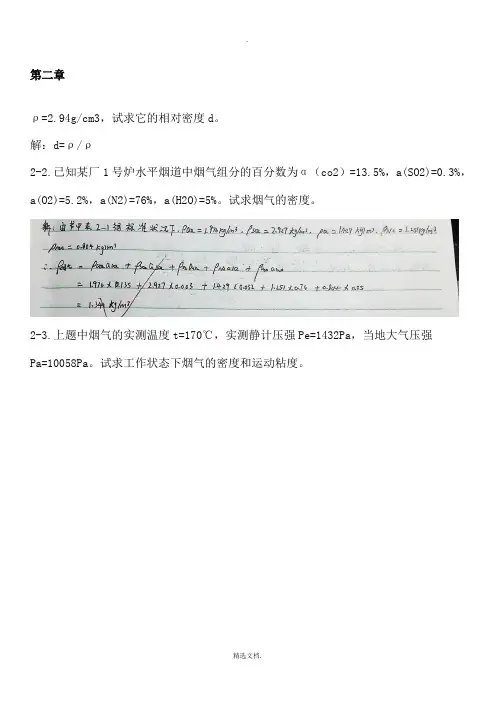 .
第二章
ρ=2.94g/cm3，试求它的相对密度d。
解：d=ρ/ρ
2-2.已知某厂1号炉水平烟道中烟气组分的百分数为α（co2）=13.5%，a(SO2)=0.3%，
a(O2)=5.2%，a(N2)=76%，a(H2O)=5%。试求烟气的密度。
解：由书中表2-1查标准状况下，ρCO2=1.976kg/m³，ρSO2=2.927kg/m³，ρO2=1.429kg/m³，ρN2=1.251kg/m³
ρH2O=0.804kg/m³
= 1.976×0.135 + 2.927×0.003 + 1.429×0.052 + 1.251×0.76 + 0.804×0.05
= 1.344 kg/m³
2-3.上题中烟气的实测温度t=170℃，实测静计压强Pe=1432Pa，当地大气压强
Pa=10058Pa。试求工作状态下烟气的密度和运动粘度。
精选文档.